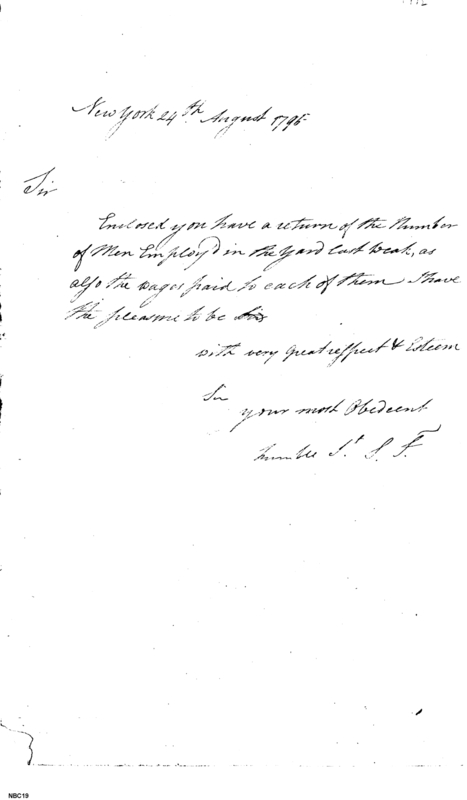 New York 24th August 1795
Sir
Enclosed you have a return of the Number
of Men Employ'd in the Yard last Weak, as
also the wages paid to each of them I have
the pleasure to be
with very great respect & Esteem
Sir
your most Obedeent
humble St. S. F.
NBC19